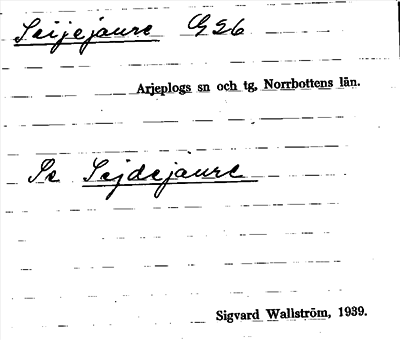 Seijejaure G26
Arjeplogs sn och tg, Norrbottens län.
Se Sejdejaure
Sigvard Wallström, 1939.